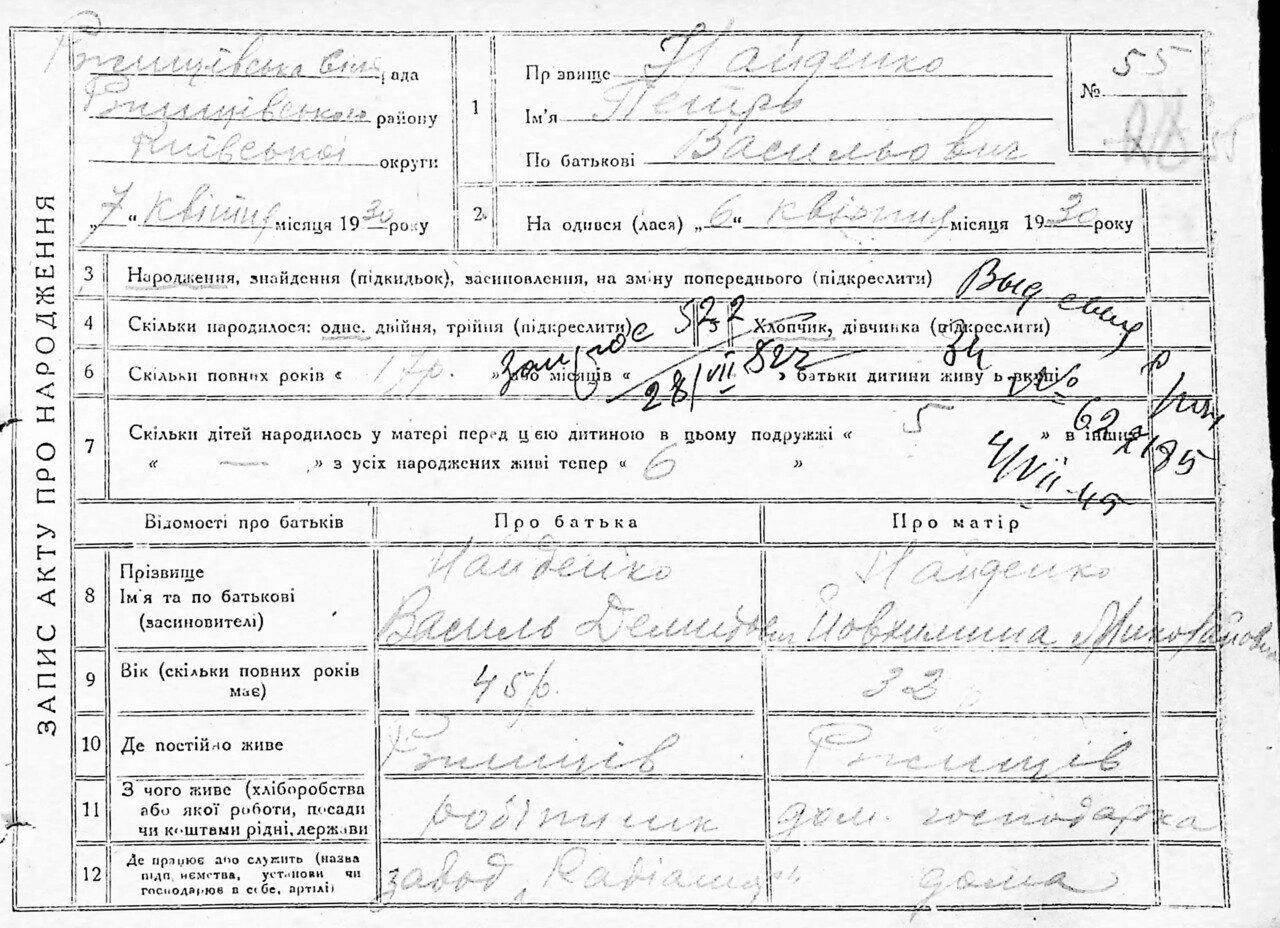 ЗАПИС АКТУ ПРО НАРОДЖЕННЯ
Ржищівська рада
Ржищівського району
Київської округи
„7“ квітня місяця 1930 року
1
Прізвище Найденко
Ім'я Петро
По батькові Васильович
№ 55
55
2
На одився (лася) „6“ квітня місяця 1930 року
3
Народження, знайдення (підкидьок), засиновлення, на зміну попереднього (підкреслити)
4
Скільки народилося: одне, двійня, трійня (підкреслити)
Хлопчик, дівчинка (підкреслити)
6
Скільки повних років « 17р. » або місяців « » батьки дитини живу ь вкупі
28/VII
7
Скільки дітей народилось у матері перед цією дитиною в цьому подружжі « 5 » в інших
« — » з усіх народжених живі тепер « 6 »
4/VII-45
Відомості про батьків
Про батька
Про матір
8
Прізвище
Ім'я та по батькові
(засиновителі)
Найденко
Василь Демидович
Найденко
Йовхимина Миколаївна
9
Вік (скільки повних років
має)
45р.
32
10
Де постійно живе
Ржищів
Ржищів
11
З чого живе (хліборобства
або якої роботи, посади
чи коштами рідні, держави
робітник
дом. господарка
12
Де працює або служить (назва
підп иємства, установи чи
господарює в себе, артілі)
завод „Радіатор“
дома